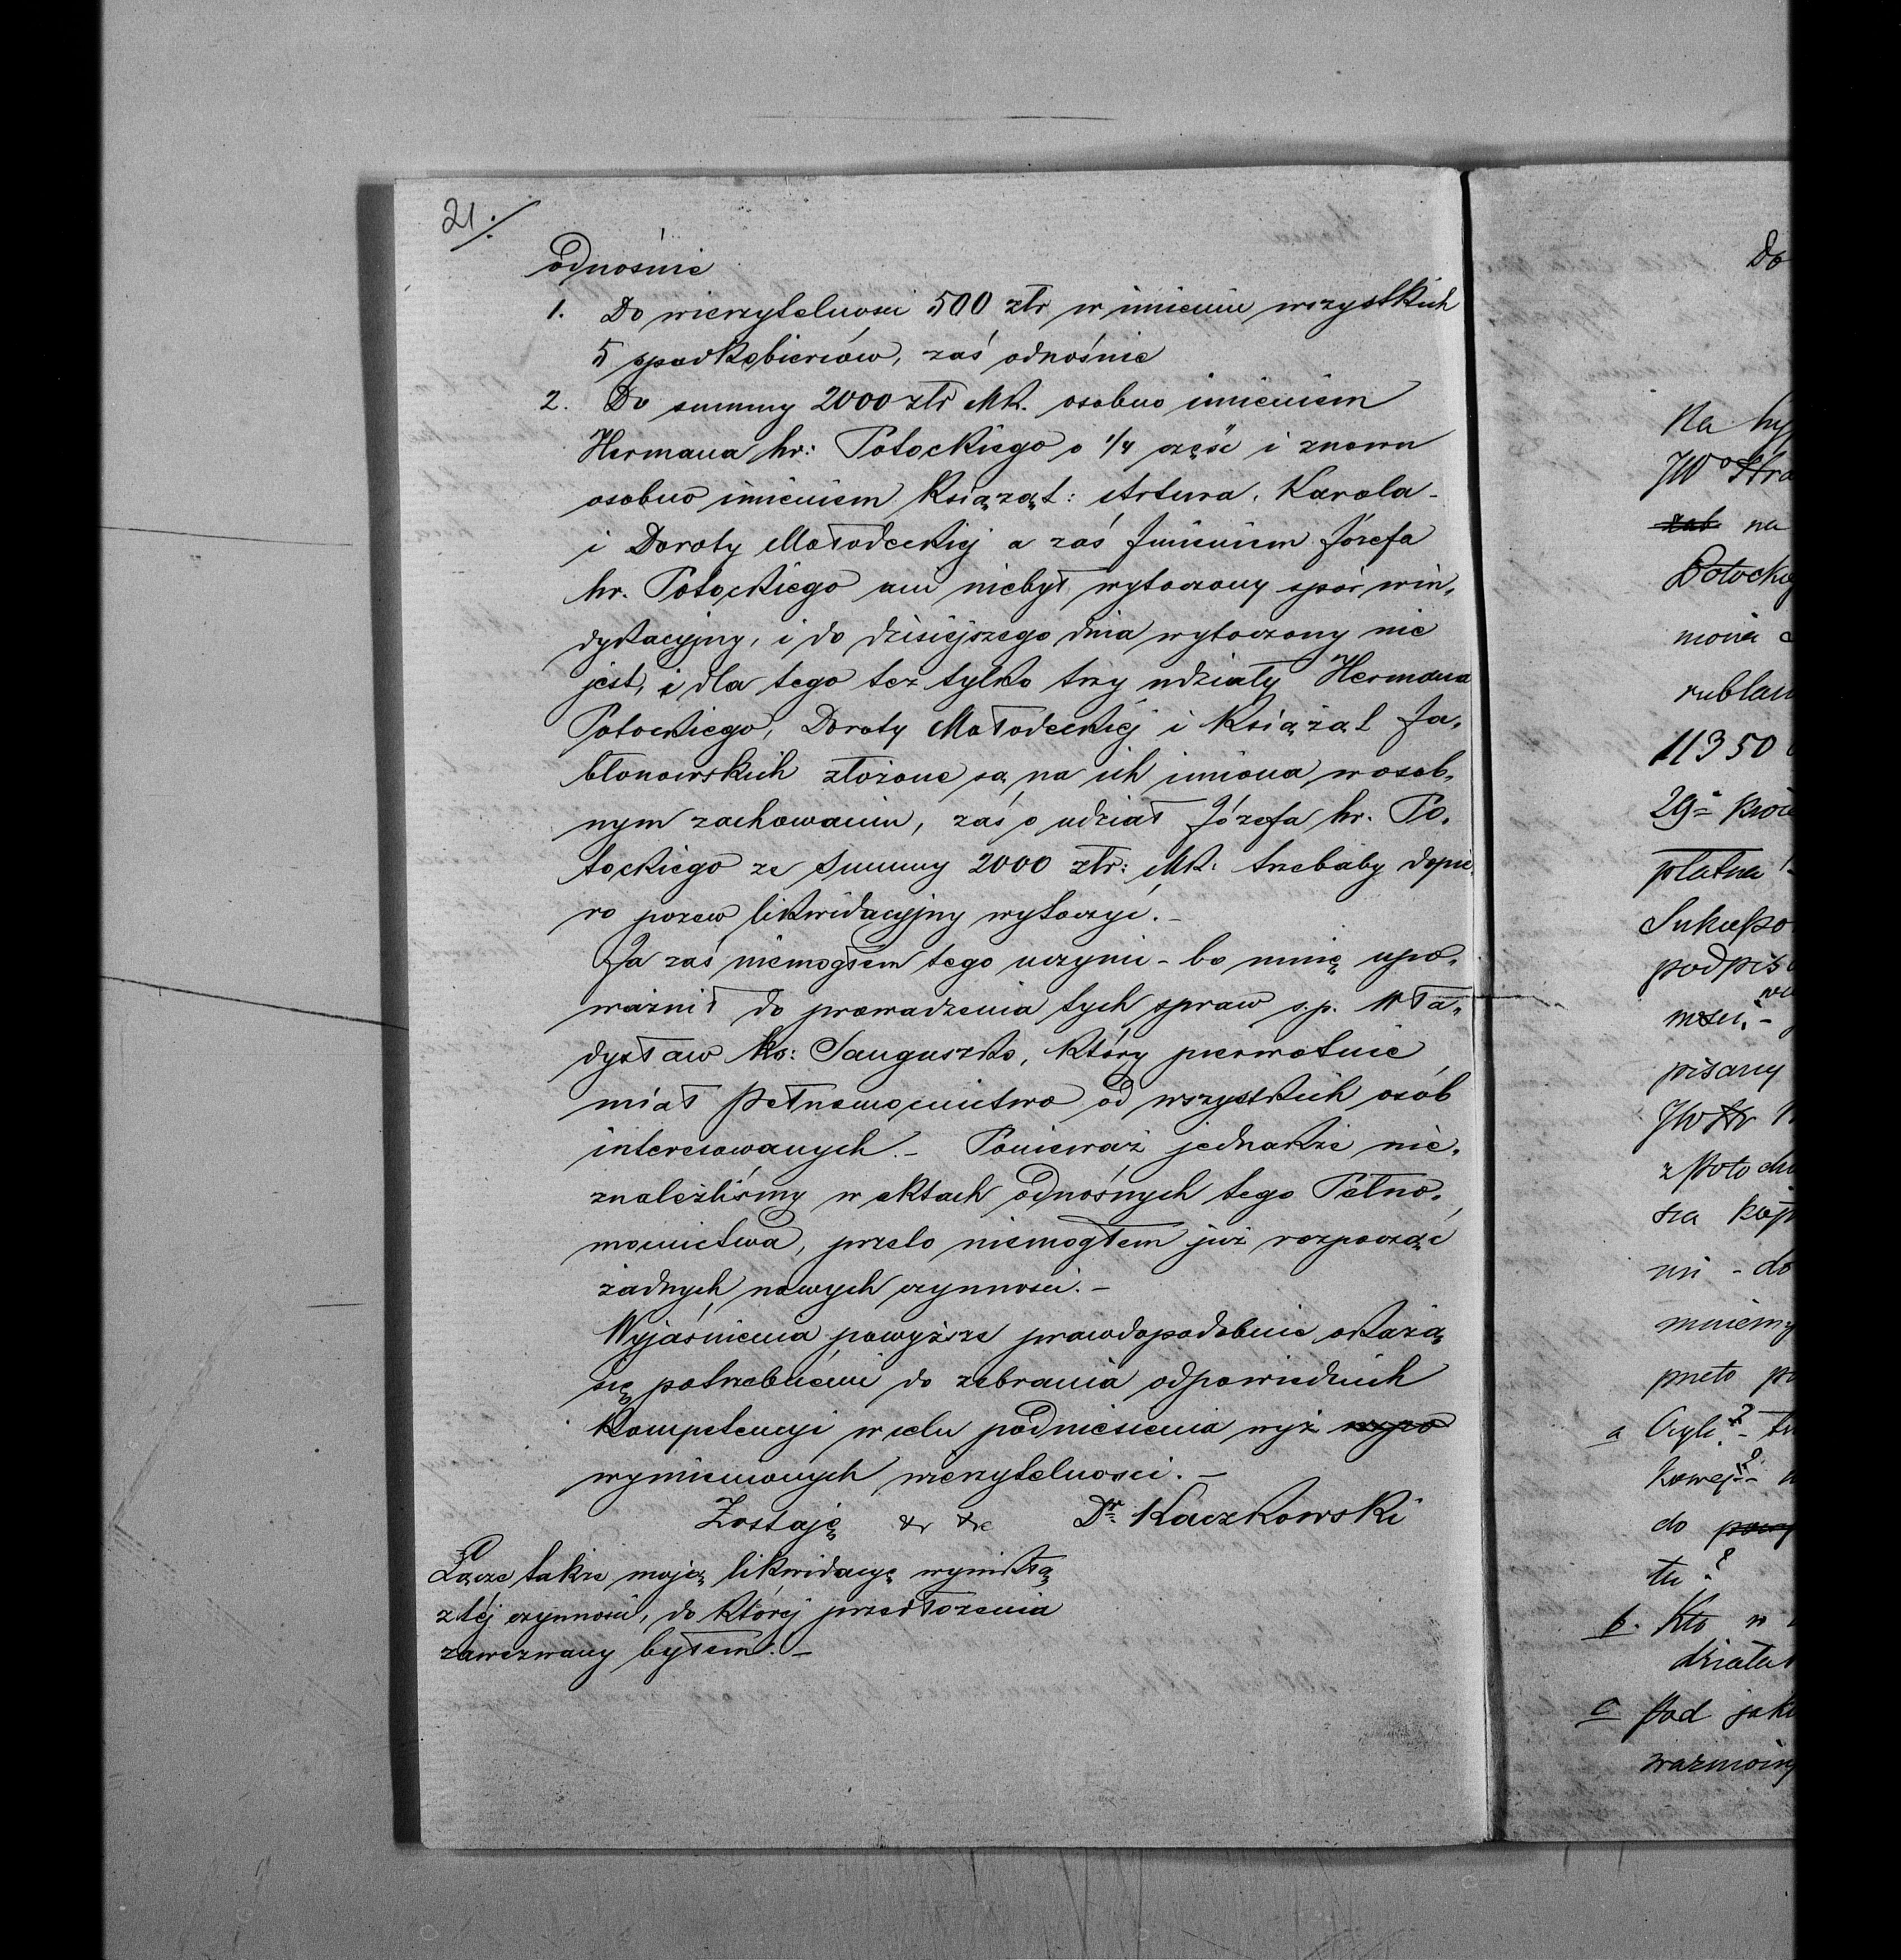 21./.
odnośnie
1. Do wierzytelnosci 500 złr w imieniu wszystkich
5 spadkobierców, zaś odnośnie
2. Do summy 2000 złr Mk. osobno imieniem
Hermana hr: Potockiego o 1/4 część i znowu
osobno imieniem Książąt: Artura, Karola
i Doroty Mołodeckiej a zaś Imieniem Józefa
hr. Potockiego ani niebył wytoczony spór win„
dykacyjny, i do dzisiejszego dnia wytoczony nie
jest, i dla tego tez tylko trzy udziały Hermana
Potockiego, Doroty Mołodeckiej i Książąt Ja„
błonowskich złożone są na ich imiona w osob„
nym zachowaniu, zaś o udział Józefa hr. Po„
tockiego ze Summy 2000 złr: Mk: trzebaby dopie„
ro pozew likwidacyjny wytoczyć. –
Ja zaś niemogłem tego uczynić – bo mnię upo„
ważnił do prowadzenia tych spraw s.p. Wła„
dysław ks: Sanguszko, który pierwotnie
miał Pełnomocnictwo od wszystkich osób
interesowanych. – Ponieważ jednakże nie„
znaleźliśmy w aktach odnośnych tego Pełno„
mocnictwa, przeto niemogłem już rozpocząć
żadnych nowych czynności. –
Wyjaśnienia powyższe prawdopodobnie okażą
się potrzebnemi do zebrania odpowiednich
Kompetencyi w celu podniesienia wyż wypo
wymienionych wierzytelnosci. –
Zostaję & &c Dr. Kaczkowski
Łącze także moją likwidacyę wynikłą
z tej czynności, do której przedłożenia
zawezwany byłem. –
Do
Na hy
JW
zab na
Potocki
rublam
11350
29
płatna
podpis
pisany
JW
na
ni - do
mniemy
a Czyli
do
tu?
b. Kto w
działa
c Pod jaki